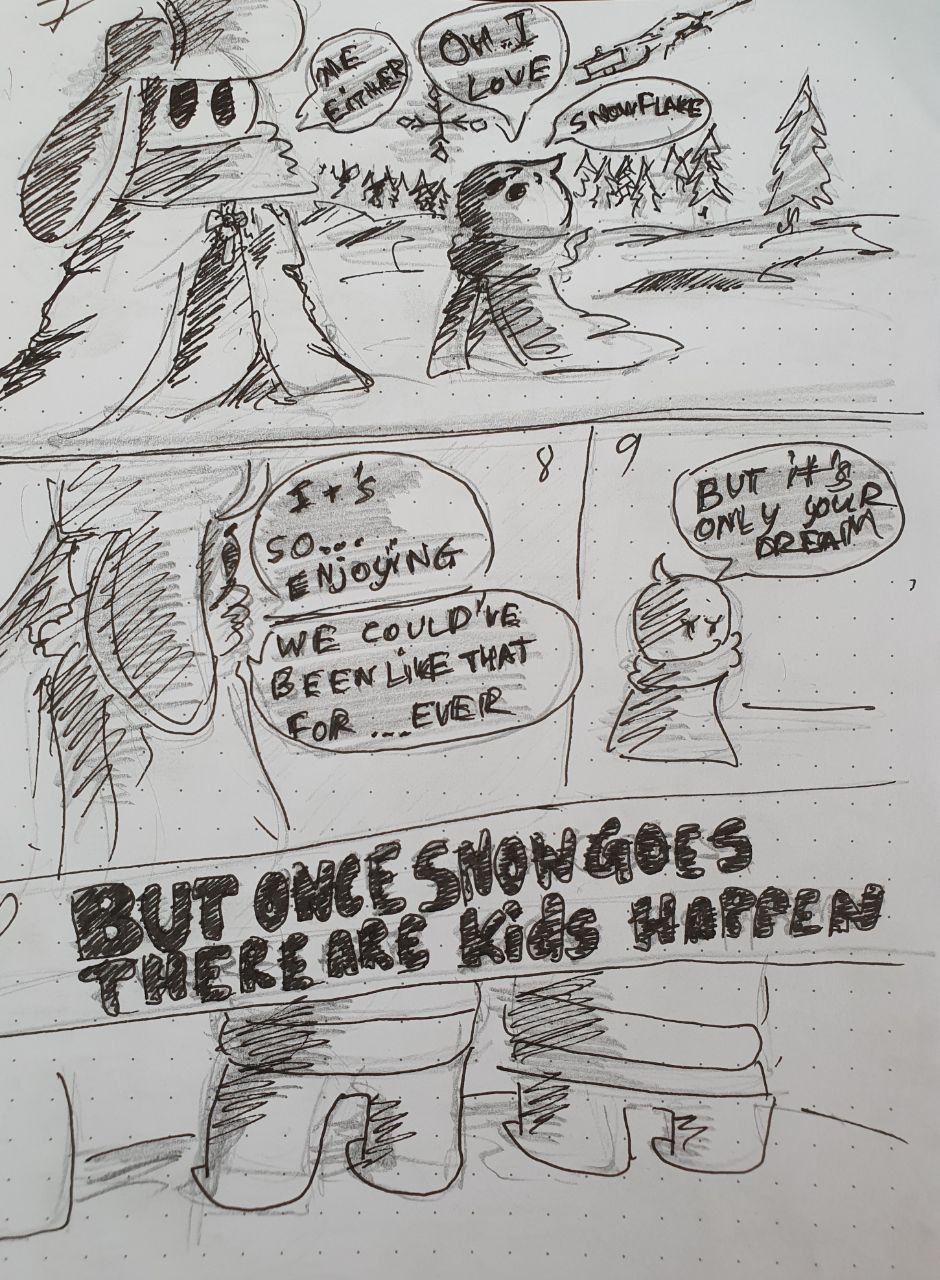 ME
EITHER
OH..I
LOVE
SNOWFLAKE
8
I+'S
SO....
ENJOYING
WE COULD'VE
BEEN LIKE THAT
FOR ....EVER
9
BUT it's
ONLY YOUR
DREAM
BUT ONCE SNOW GOES
THERE ARE Kids HAPPEN